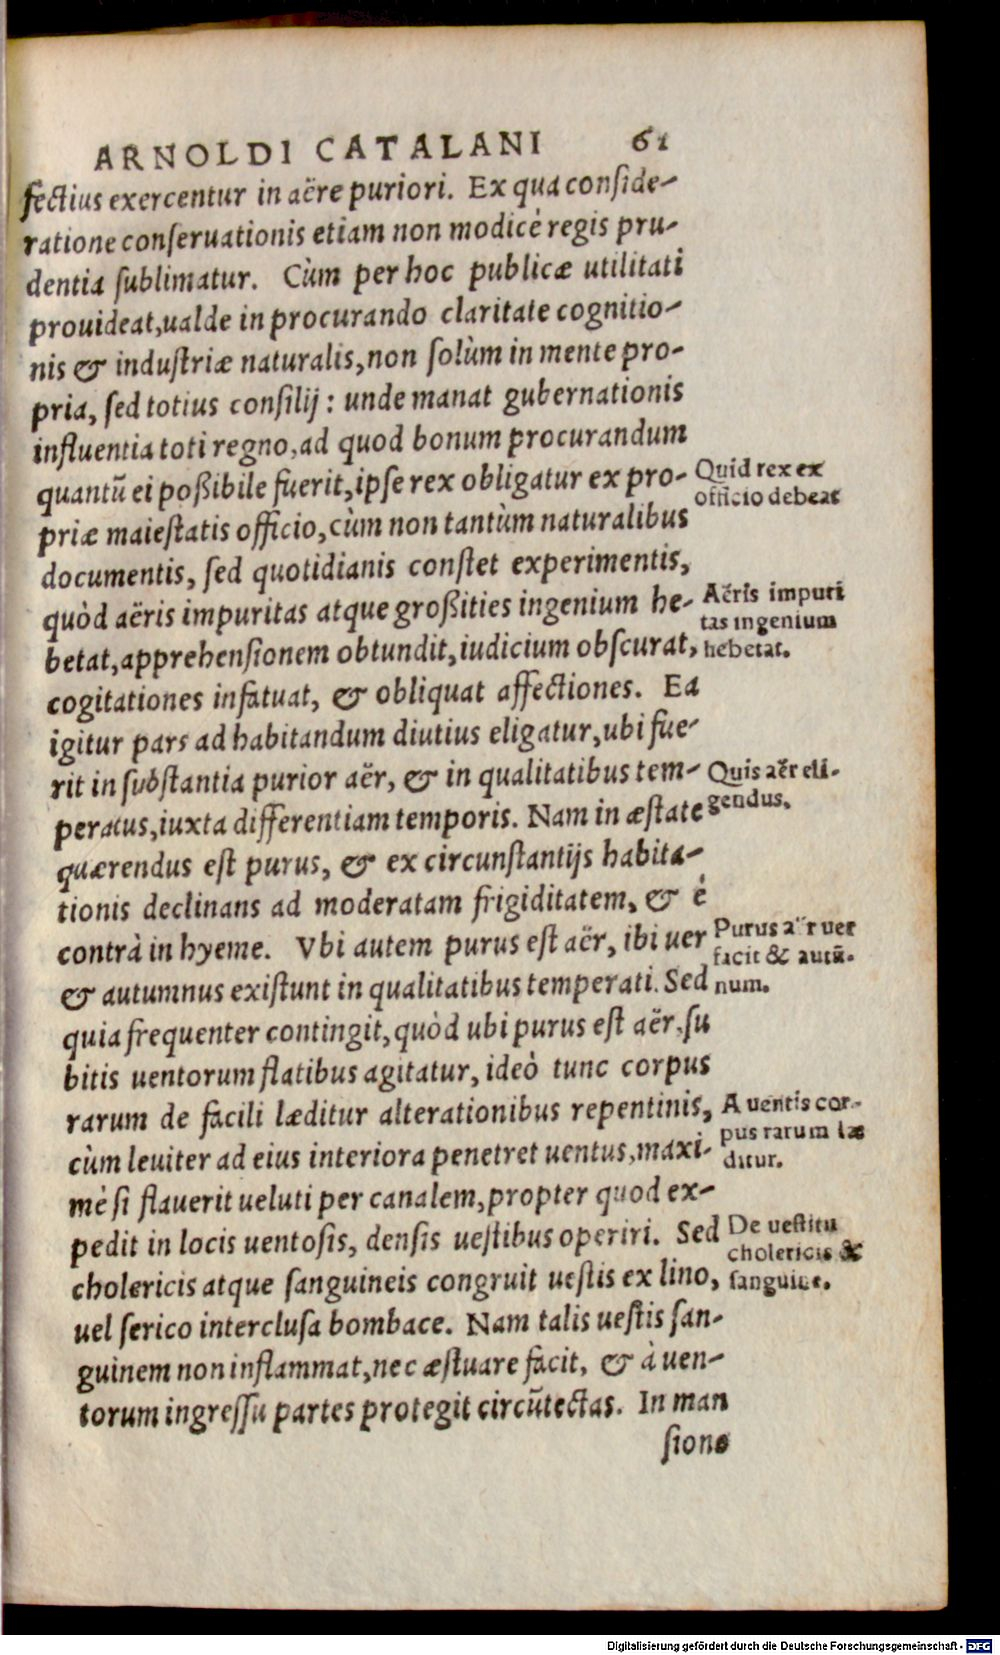 ARNOLDI CATALANI 61
fectius exercentur in aëre puriori. Ex qua conside-
ratione conseruationis etiam non modicè regis pru-
dentia sublimatur. Cùm per hoc publicæ utilitati
prouideat, ualde in procurando claritate cognitio-
nis & industriæ naturalis, non solùm in mente pro-
pria, sed totius consilij: unde manat gubernationis
influentia toti regno, ad quod bonum procurandum
quantū ei poßibile fuerit, ipse rex obligatur ex pro-
priæ maiestatis officio, cùm non tantùm naturalibus
documentis, sed quotidianis constet experimentis,
quòd aëris impuritas atque großities ingenium he-
betat, apprehensionem obtundit, iudicium obscurat,
cogitationes infatuat, & obliquat affectiones. Ea
igitur pars ad habitandum diutius eligatur, ubi fue-
rit in substantia purior aër, & in qualitatibus tem-
peratus, iuxta differentiam temporis. Nam in æstate
quærendus est purus, & ex circunstantijs habita-
tionis declinans ad moderatam frigiditatem, & è
contrà in hyeme. Vbi autem purus est aër, ibi uer
& autumnus existunt in qualitatibus temperati. Sed
quia frequenter contingit, quòd ubi purus est aër, su
bitis uentorum flatibus agitatur, ideò tunc corpus
rarum de facili læditur alterationibus repentinis,
cùm leuiter ad eius interiora penetret uentus, maxi-
mè si flauerit ueluti per canalem, propter quod ex-
pedit in locis uentosis, densis uestibus operiri. Sed
cholericis atque sanguineis congruit uestis ex lino,
uel serico interclusa bombace. Nam talis uestis san-
guinem non inflammat, nec æstuare facit, & à uen-
torum ingressu partes protegit circūtectas. In man
sione
Quid rex ex
officio debeat
Aëris impuri
tas ingenium
hebetat.
Quis aër eli-
gendus.
Purus aër uer
facit & autū-
num.
A uentis cor-
pus rarum læ
ditur.
De uestitu
cholericis &
sanguine.
Digitalisierung gefördert durch die Deutsche Forschungsgemeinschaft - DFG